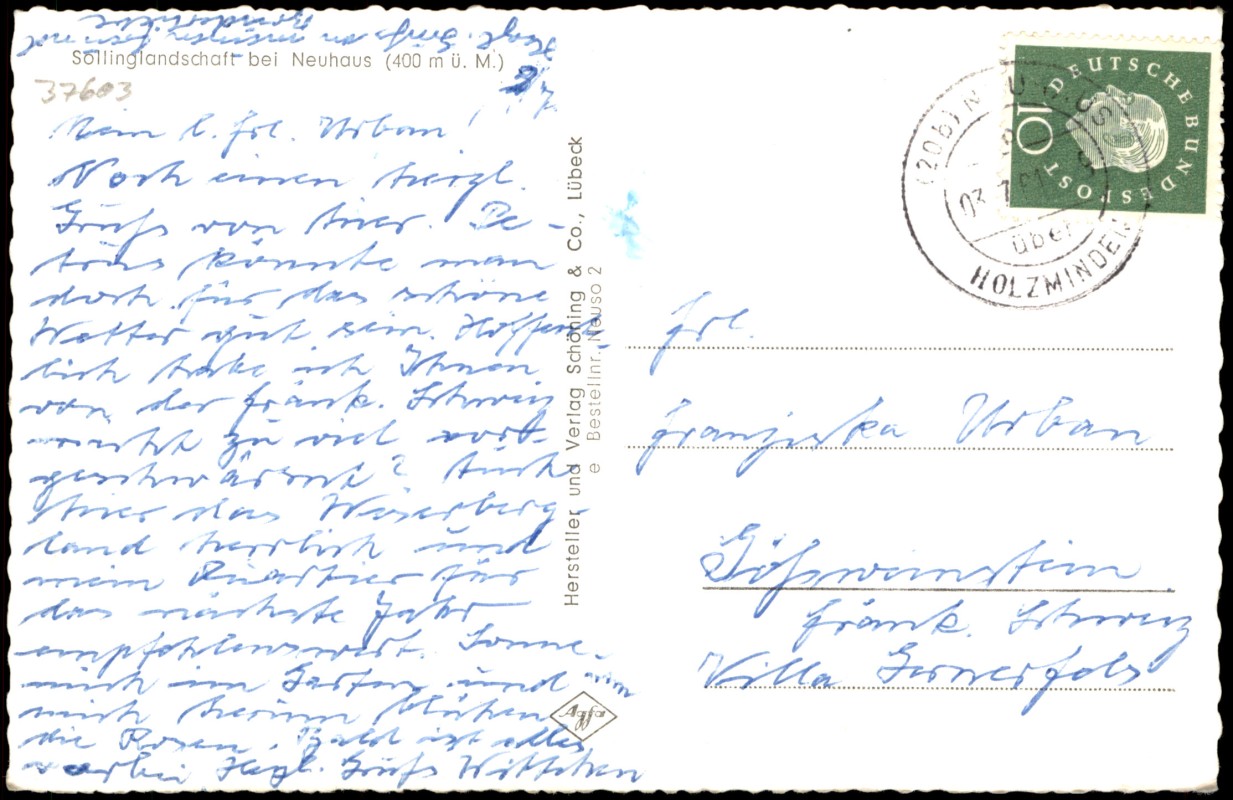 Hzgl. Gruß an
Sollinglandschaft bei Neuhaus (400 m ü. M.)
37603
Mein l. Frl. Urban!
Noch einen herzl.
Gruß von hier. Be-
trüs könnte man
doch für das schöne
Wetter gut sein. Hoffent-
lich habe ich Ihnen
von der Fränk. Schweiz
nicht zu viel vor-
geschwärmt? Auch
hier das Weserberg-
land herrlich und
mein Quartier für
das nächste Jahr
empfehlenswert. Sonne
mich im Garten und um
mich herum blühen
die Rosen. Bald ist alles
vorbei Hzgl. Gruß Wittchen
Hersteller und Verlag Schöning & Co., Lübeck
e Bestellnr. Neuso 2
Agfa
DEUTSCHE BUNDESPOST
10
(20b) NEUHAUS
über
HOLZMINDEN
Frl.
Franziska Urban
Gößweinstein
Fränk. Schweiz
Villa